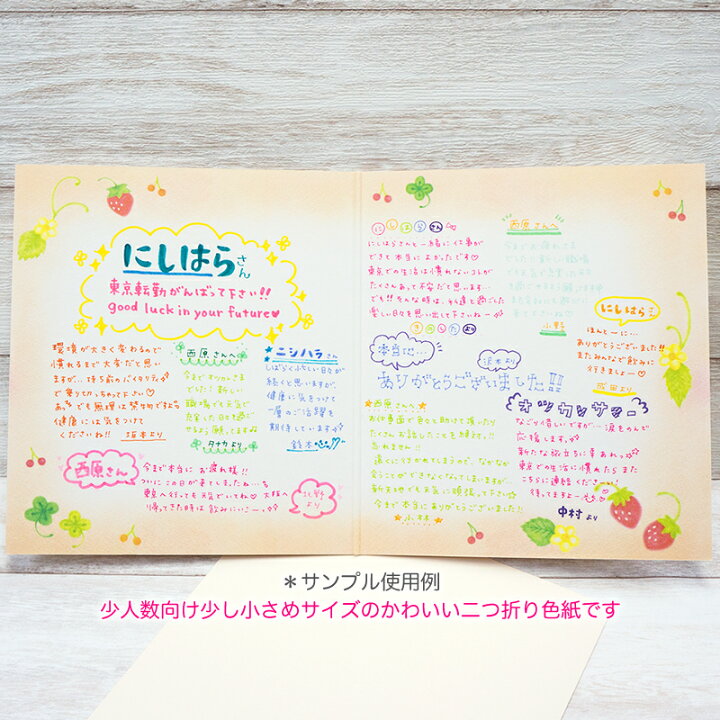 にしはらさん
東京転勤がんばって下さい!!
good luck in your future♥
環境が大きく変わるので
慣れるまで大変だと思い
ますが、持ち前のバイタリティ
で乗りきっちゃって下さい♡
あっでも無理は禁物ですよ
健康には気をつけて
くださいね!! 坂本より
西原さんへ
今までありがとう
でした! 新しい
職場でも元気で
充実した日を過
せるよう願ってます
タナカより
★ニシハラさん
しばらくは忙しい日々が
続くと思いますが、
健康に気をつけて
一層のご活躍を
期待しています
鈴木
西原さん
今まで本当に お疲れ様!!
ついにこの日が来てしまたね…
東京へ行っても元気でいてね♡ 大阪へ
帰ってきた時は飲みにいこーっ
北野より
にしはらさん
にしはらさんと一緒に仕事が
できて本当によかったです♡
東京での生活は慣れないコトが
たくさんあって不安だと思います…
でも!! そんな時は、
楽しい日々を思い出して下さいねー
より
西原さんへ
今までお疲れさま
でした! 新しい職場
でも
小野
にしはらっ!
ほんとーに…
ありがとうございました!
またみんなで飲みに
行きましょー
成田より
本当に…
ありがとうございました!!
★西原さん★
お仕事面で色々と助けて頂いたり
たくさんお話ししたことを絶対に!!
忘れません!!
遠くに行かれてしまうので、なかなか
会うことができなくなってしまいますが
新天地でもお元気に頑張って下さい☆
今まで本当にありがとうございました!!
★小林★
オツカレサマー
なごり惜しいですが…涙をのんで
応援します。
新たな旅立ちに幸あれっ。
東京での生活に慣れたら また
こちらに連絡くださーい!
待ってますよー
中村より
＊サンプル使用例
少人数向け少し小さめサイズのかわいい二つ折り色紙です